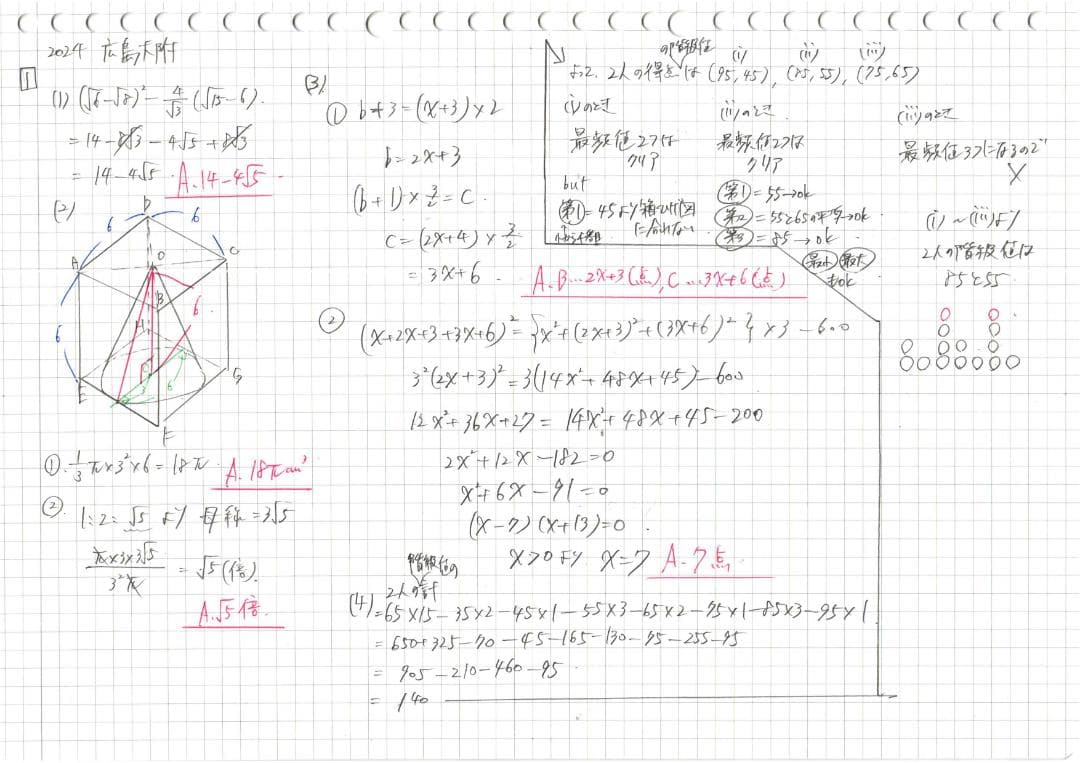 2024 広島大附
1
(1) (√6-√8)² - 4/√3 (√15-6).
= 14-8√3-4√5+8√3
= 14-4√5. A. 14-4√5.
(2)
D
6 6
A O C
B
6
H
6
3 6
E G
F
① 1/3 π×3²×6=18π. A. 18πcm³
②
1:2:√5 より 母線=3√5
π×3×3√5 / 3²π = √5(倍).
A. √5倍.
(3)
① b+3=(x+3)×2
b=2x+3
(b+1)×3/2=C.
C=(2x+4)×3/2
=3x+6. A. B…2x+3(点), C…3x+6(点)
②
(x+2x+3+3x+6)²={x²+(2x+3)²+(3x+6)²}×3-600
3²(2x+3)²=3(14x²+48x+45)-600
12x²+36x+27=14x²+48x+45-200
2x²+12x-182=0
x²+6x-91=0
(x-7)(x+13)=0.
x>0より x=7 A. 7点
階級値の
2人の計
(4) =65×15-35×2-45×1-55×3-65×2-75×1-85×3-95×1
=650+325-70-45-165-130-75-255-95
= 905-210-460-95
= 140
の階級値
よって、2人の得点は (95,45), (85,55), (75,65)
(i) (ii) (iii)
(i)のとき
最頻値2つは
クリア
but
第1=45より箱ひげ図
に合わない
(ii)のとき
最頻値2つは
クリア
第1=55→ok
第2=55と65の平均→ok.
第3=85→ok
最小 最大
もok
(iii)のとき
最頻値3つになるので
×
(i)～(iii)より
2人の階級値は
85と55